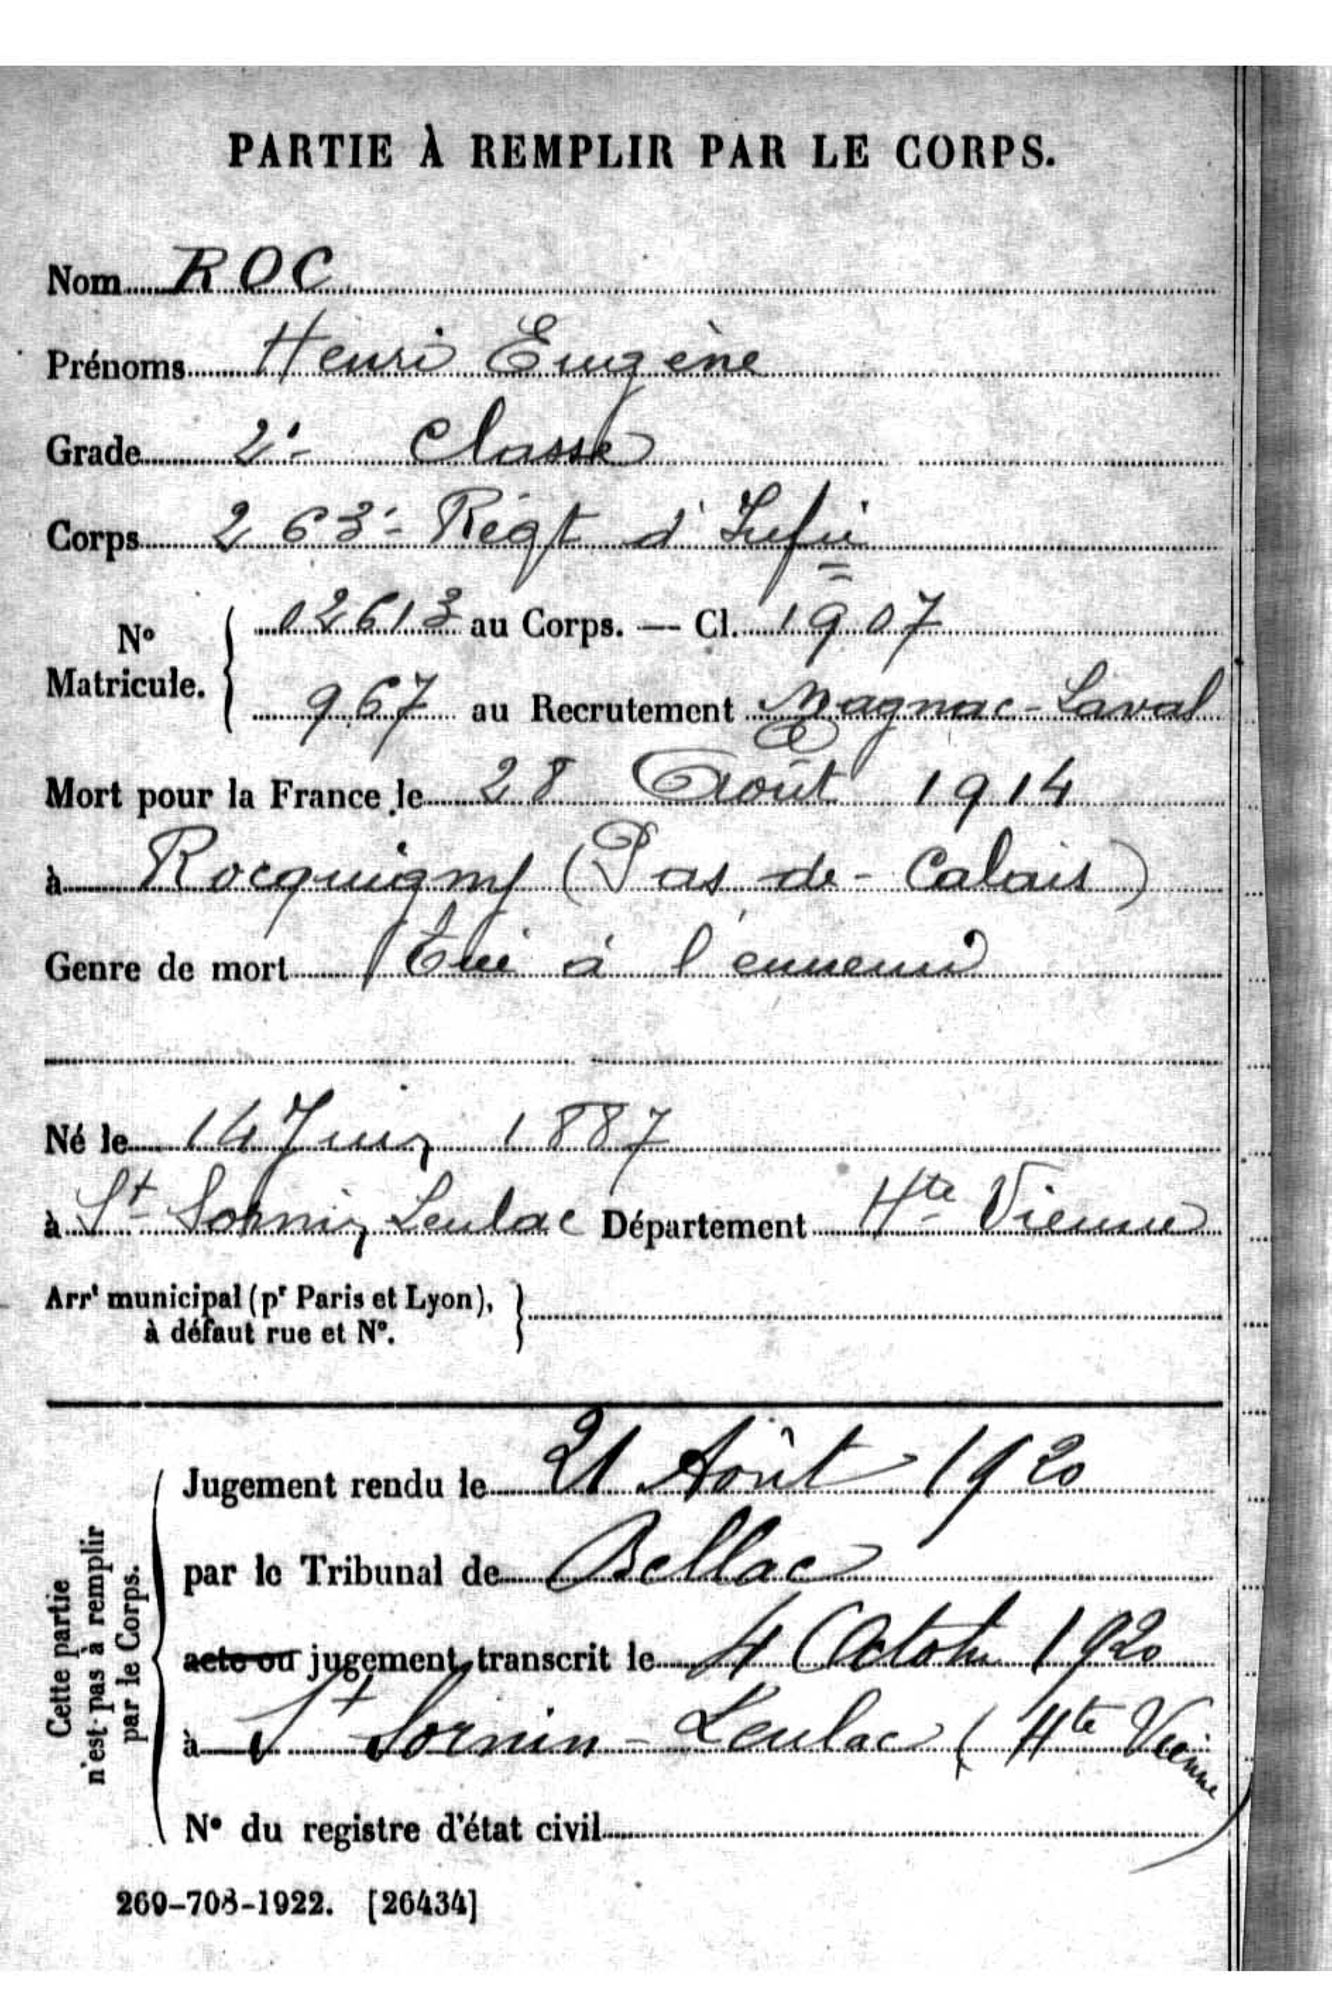 PARTIE À REMPLIR PAR LE CORPS.
Nom ROC
Prénoms Henri Eugène
Grade 2e Classe
Corps 263e Régt d'Infie
No Matricule. 02613 au Corps. — Cl. 1907
967 au Recrutement Magnac-Laval
Mort pour la France le 28 Août 1914
à Rocquigny (Pas-de-Calais)
Genre de mort Tué à l'ennemi
Né le 14 Juin 1887
à St Sornin Leulac Département Hte Vienne
Arrt municipal (pr Paris et Lyon),
à défaut rue et No.
Cette partie
n'est pas à remplir
par le Corps.
Jugement rendu le 21 Août 1920
par le Tribunal de Bellac
acte ou jugement transcrit le 4 Octobre 1920
à St Sornin-Leulac (Hte Vienne)
No du registre d'état civil
269-708-1922. [26434]